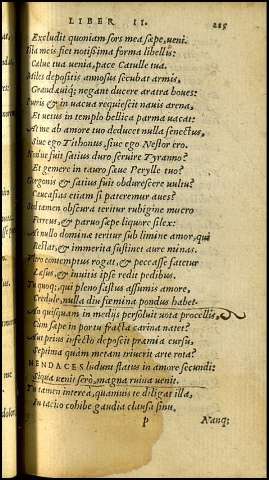 LIBER II. 225
Excludit quoniam sors mea sæpe, ueni.
Sis meis fiet notißima forma libellis:
Calue tua uenia, pace Catulle tua.
Miles depositis annosus secubat armis,
Grandæuiq; negant ducere aratra boues:
Putris & in uacua requiescit nauis arena,
Et uetus in templo bellica parma uacat:
At me ab amore tuo deducet nulla senectus,
Siue ego Tithonus, siue ego Nestor ero.
Nonne fuit satius duro seruire Tyranno?
Et gemere in tauro sæue Perylle tuo?
Gorgonis & satius fuit obdurescere uultu?
Caucasias etiam si pateremur aues?
Sed tamen obscura teritur rubigine mucro
Ferreus, & paruo sæpe liquore silex:
At nullo dominæ teritur sub limine amor, qui
Restat, & immerita sustinet aure minas.
Vltro contemptus rogat, & peccasse fatetur
Læsus, & inuitis ipse redit pedibus.
Tu quoq; qui pleno fastus assumis amore,
Credule, nulla diu fœmina pondus habet.
An quisquam in medijs persoluit uota procellis,
Cum sæpe in portu fracta carina natet?
Aut prius infecto deposcit præmia cursu,
Septima quàm metam triuerit arte rota?
MENDACES ludunt flatus in amore secundi:
Siqua uenit serò, magna ruina uenit.
Tu tamen interea, quamuis te diligat illa,
In tacito cohibe gaudia clausa sinu,
P Nanq;